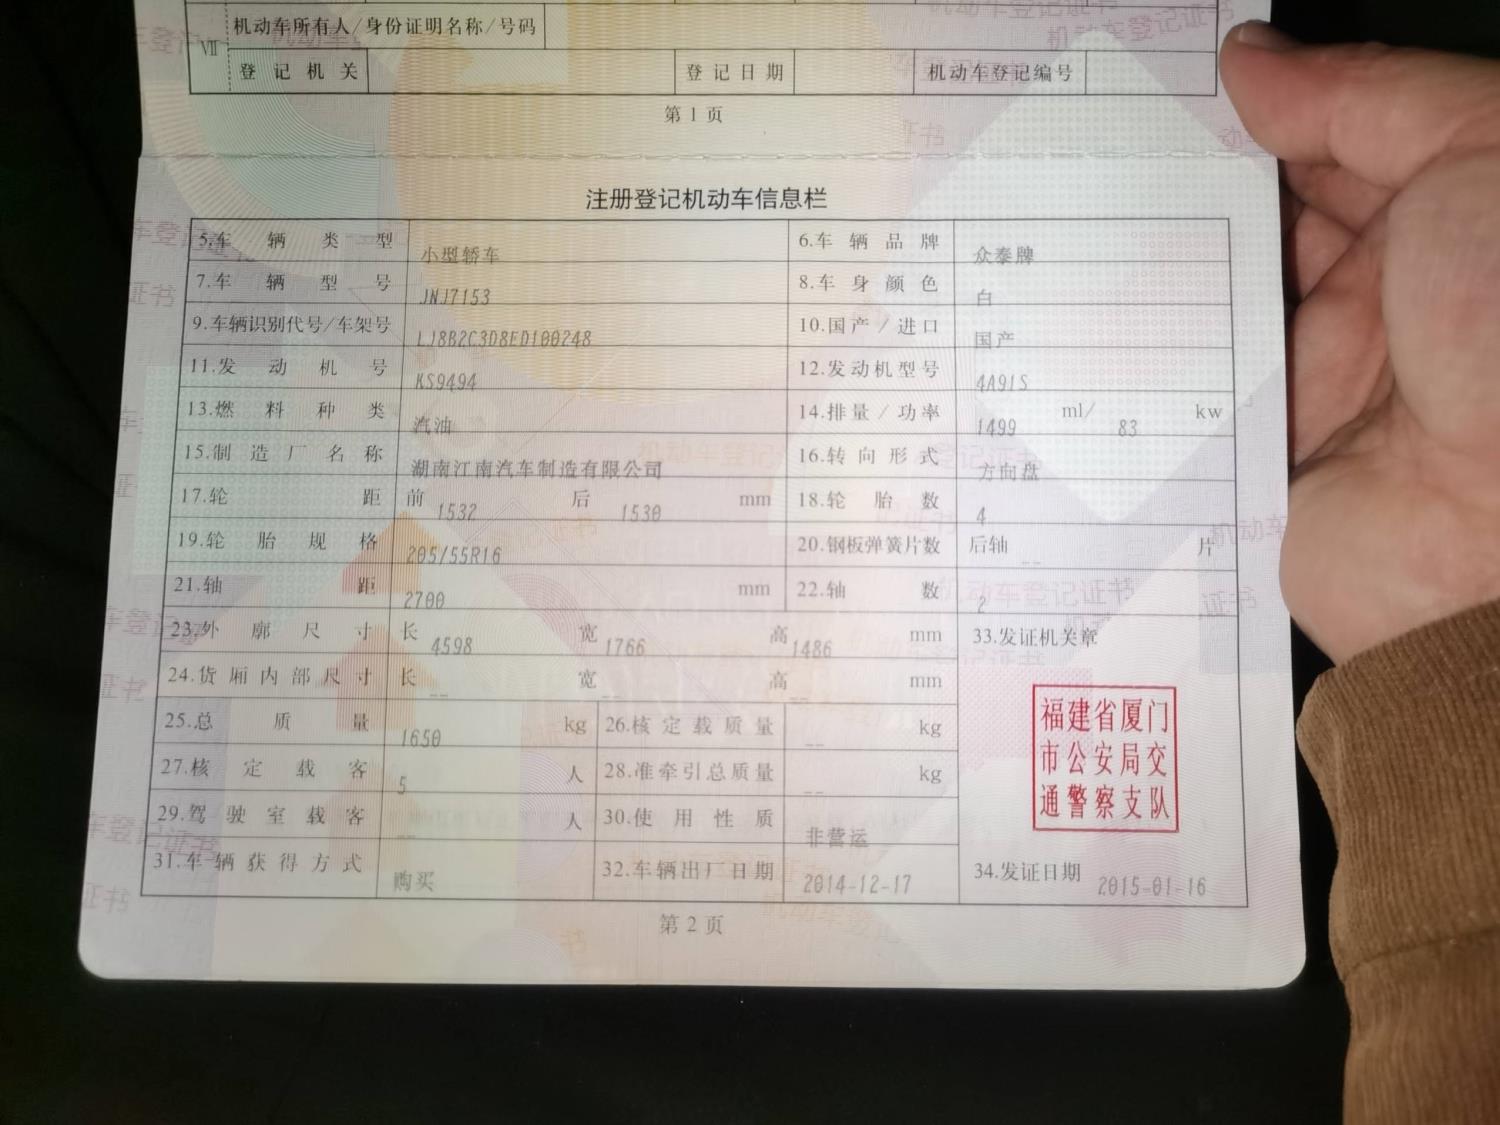 VII 机动车所有人/身份证明名称/号码
登记机关 登记日期 机动车登记编号
第 1 页
注册登记机动车信息栏
5.车辆类型 小型轿车 6.车辆品牌 众泰牌
7.车辆型号 JNJ7153 8.车身颜色 白
9.车辆识别代号/车架号 LJ8B2C3D8ED100248 10.国产/进口 国产
11.发动机号 KS9494 12.发动机型号 4A91S
13.燃料种类 汽油 14.排量/功率 1499 ml/ 83 kw
15.制造厂名称 湖南江南汽车制造有限公司 16.转向形式 方向盘
17.轮距 前 1532 后 1530 mm 18.轮胎数 4
19.轮胎规格 205/55R16 20.钢板弹簧片数 后轴 -- 片
21.轴距 2700 mm 22.轴数 2
23.外廓尺寸 长 4598 宽 1766 高 1486 mm 33.发证机关章
24.货厢内部尺寸 长 -- 宽 -- 高 -- mm
25.总质量 1650 kg 26.核定载质量 -- kg
27.核定载客 5 人 28.准牵引总质量 -- kg
29.驾驶室载客 -- 人 30.使用性质 非营运
福建省厦门
市公安局交
通警察支队
31.车辆获得方式 购买 32.车辆出厂日期 2014-12-17 34.发证日期 2015-01-16
第 2 页